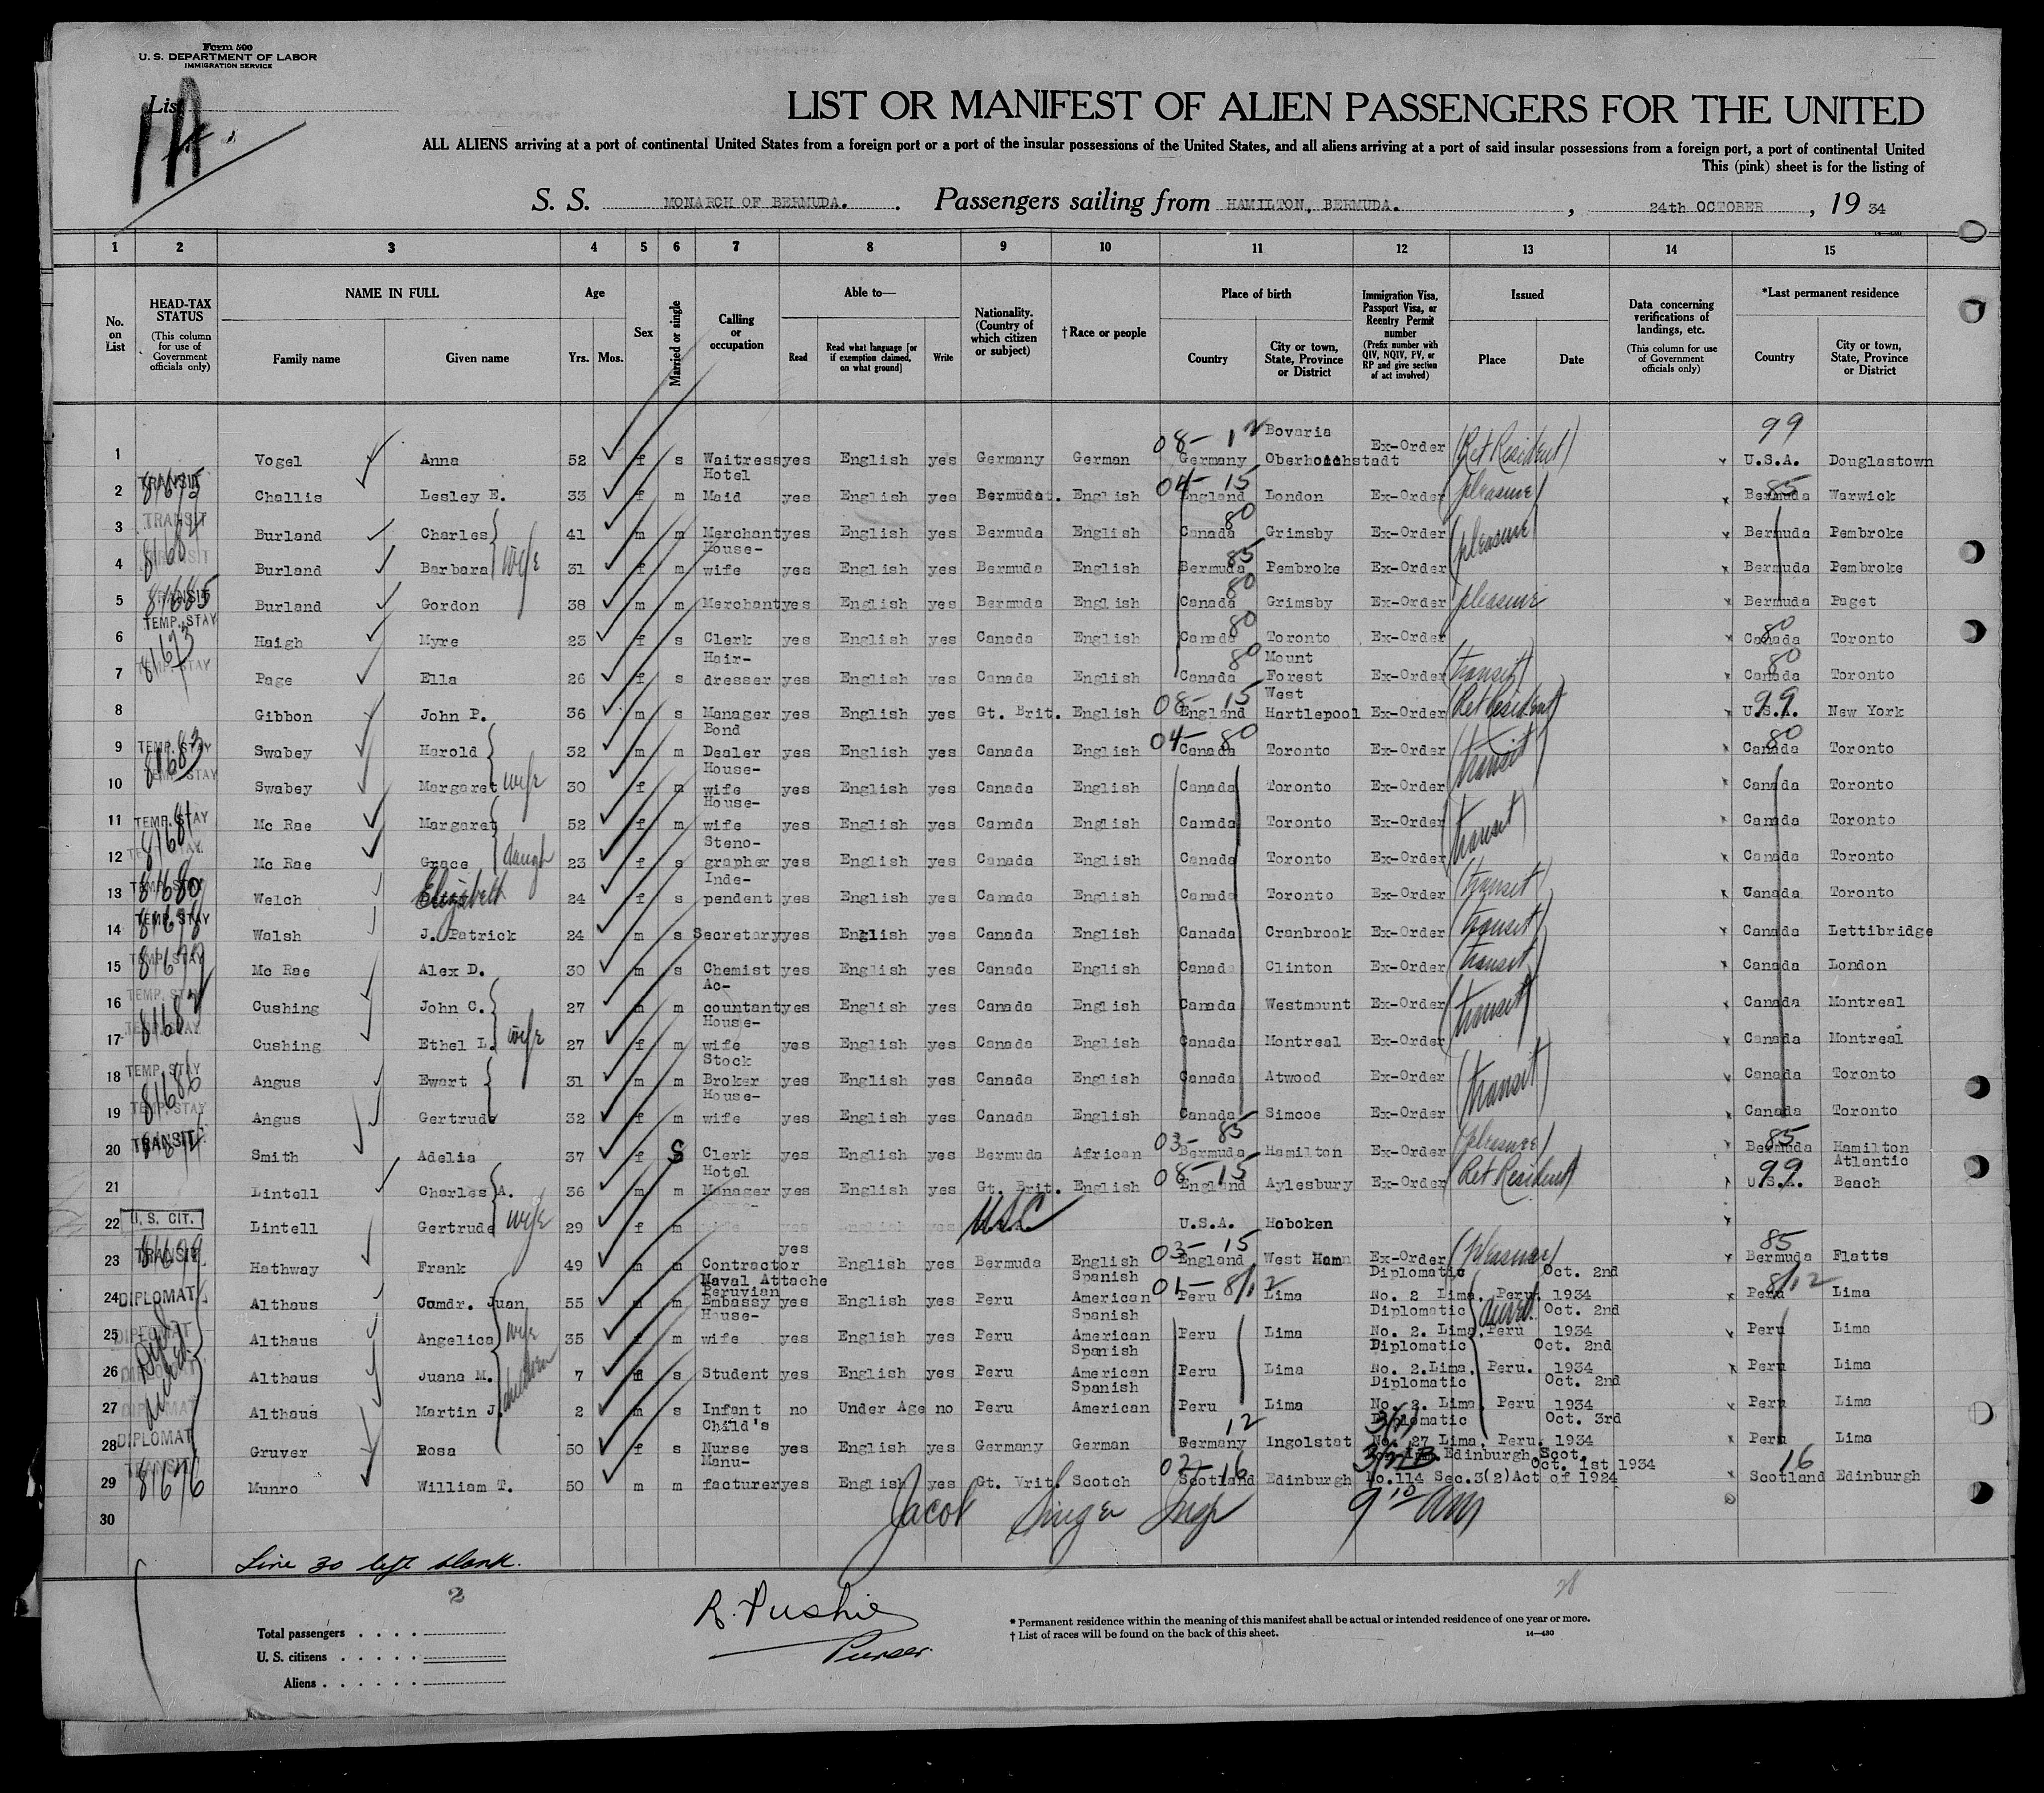 Form 500
U. S. DEPARTMENT OF LABOR
IMMIGRATION SERVICE
List
1A
LIST OR MANIFEST OF ALIEN PASSENGERS FOR THE UNITED
ALL ALIENS arriving at a port of continental United States from a foreign port or a port of the insular possessions of the United States, and all aliens arriving at a port of said insular possessions from a foreign port, a port of continental United
This (pink) sheet is for the listing of
S. S. MONARCH OF BERMUDA. Passengers sailing from HAMILTON, BERMUDA. , 24th OCTOBER , 19 34
1 2 3 4 5 6 7 8 9 10 11 12 13 14 15
No. on List
HEAD-TAX STATUS (This column for use of Government officials only)
NAME IN FULL Family name Given name
Age Yrs. Mos.
Sex
Married or single
Calling or occupation
Able to— Read Read what language [or if exemption claimed, on what ground] Write
Nationality. (Country of which citizen or subject)
†Race or people
Place of birth Country City or town, State, Province or District
Immigration Visa, Passport Visa, or Reentry Permit number (Prefix number with QIV, NQIV, PV, or RP and give section of act involved)
Issued Place Date
Data concerning verifications of landings, etc. (This column for use of Government officials only)
*Last permanent residence Country City or town, State, Province or District
1 Vogel Anna 52 f s Waitress yes English yes Germany German 08-12 Germany Bovaria Ex-Order (Ret Resident) 99 U.S.A. Douglastown
2 TRANSIT Challis Lesley E. 33 f m Hotel Maid yes English yes Bermuda English 04-15 England London Ex-Order (pleasure) 85 Bermuda Warwick
3 TRANSIT Burland Charles 41 m m Merchant yes English yes Bermuda English 80 Canada Grimsby Ex-Order (pleasure) Bermuda Pembroke
4 TRANSIT Burland Barbara wife 31 f m House-wife yes English yes Bermuda English 85 Bermuda Pembroke Ex-Order Bermuda Pembroke
5 TRANSIT 81685 Burland Gordon 38 m m Merchant yes English yes Bermuda English 80 Canada Grimsby Ex-Order pleasure Bermuda Paget
6 TEMP. STAY 81673 Haigh Myre 23 f s Clerk yes English yes Canada English 80 Canada Toronto Ex-Order 80 Canada Toronto
7 TEMP. STAY Page Ella 26 f s Hair-dresser yes English yes Canada English 80 Canada Mount Forest Ex-Order (transit) 80 Canada Toronto
8 Gibbon John P. 36 m s Manager yes English yes Gt. Brit. English 08-15 England West Hartlepool Ex-Order (Ret Resident) 99 U.S.A. New York
9 TEMP. STAY 81683 Swabey Harold 32 m m Bond Dealer yes English yes Canada English 04-80 Canada Toronto Ex-Order (transit) 80 Canada Toronto
10 TEMP. STAY Swabey Margaret wife 30 f m House-wife yes English yes Canada English Canada Toronto Ex-Order Canada Toronto
11 TEMP. STAY 81681 Mc Rae Margaret 52 f m House-wife yes English yes Canada English Canada Toronto Ex-Order (transit) Canada Toronto
12 Mc Rae Grace daugh 23 f s Steno-grapher yes English yes Canada English Canada Toronto Ex-Order Canada Toronto
13 TEMP. STAY 81680 Welch Elizabeth 24 f s Inde-pendent yes English yes Canada English Canada Toronto Ex-Order (transit) Canada Toronto
14 TEMP. STAY 81678 Walsh J. Patrick 24 m s Secretary yes English yes Canada English Canada Cranbrook Ex-Order (transit) Canada Lettibridge
15 TEMP. STAY Mc Rae Alex D. 30 m s Chemist yes English yes Canada English Canada Clinton Ex-Order (transit) Canada London
16 TEMP. STAY 81682 Cushing John C. 27 m m Ac-countant yes English yes Canada English Canada Westmount Ex-Order (transit) Canada Montreal
17 TEMP. STAY Cushing Ethel L. wife 27 f m House-wife yes English yes Canada English Canada Montreal Ex-Order Canada Montreal
18 TEMP. STAY 81686 Angus Ewart 31 m m Stock Broker yes English yes Canada English Canada Atwood Ex-Order (transit) Canada Toronto
19 TEMP. STAY Angus Gertrude 32 f m House-wife yes English yes Canada English Canada Simcoe Ex-Order Canada Toronto
20 TRANSIT Smith Adelia 37 f S Clerk yes English yes Bermuda African 03-85 Bermuda Hamilton Ex-Order (pleasure) 85 Bermuda Hamilton
21 Lintell Charles A. 36 m m Hotel Manager yes English yes Gt. Brit. English 08-15 England Aylesbury Ex-Order (Ret Resident) 99 U.S.A. Atlantic Beach
22 U. S. CIT. Lintell Gertrude wife 29 f m USC U.S.A. Hoboken
23 TRANSIT Hathway Frank 49 m m Contractor yes English yes Bermuda English 03-15 England West Ham Ex-Order (pleasure) 85 Bermuda Flatts
24 DIPLOMAT Althaus Comdr. Juan 55 m m Naval Attache Peruvian Embassy yes English yes Peru Spanish American 01-8/12 Peru Lima Diplomatic No. 2 Lima, Peru. Oct. 2nd 1934 8/12 Peru Lima
25 DIPLOMAT Althaus Angelica wife 35 f m House-wife yes English yes Peru Spanish American Peru Lima Diplomatic No. 2. Lima, Peru Oct. 2nd 1934 Peru Lima
26 DIPLOMAT Althaus Juana M. children 7 s Student yes English yes Peru Spanish American Peru Lima Diplomatic No. 2. Lima, Peru. Oct. 2nd 1934 Peru Lima
27 DIPLOMAT Althaus Martin J. 2 m s Infant no Under Age no Peru Spanish American Peru Lima Diplomatic No. 2. Lima, Peru Oct. 2nd 1934 Peru Lima
28 DIPLOMAT Gruver Rosa 50 f s Child's Nurse yes English yes Germany German 12 Germany Ingolstat Diplomatic No. 27 Lima, Peru. Oct. 3rd 1934 Peru Lima
29 TRANSIT 81676 Munro William T. 50 m m Manu-facturer yes English yes Gt. Vrit. Scotch 02-16 Scotland Edinburgh No.114 Sec.3(2)Act of 1924 Edinburgh, Scot. Oct. 1st 1934 16 Scotland Edinburgh
30
Jacob Singer Insp 9 10 AM
Line 30 left blank.
2
28
R. Pushie
Purser
Total passengers
U. S. citizens
Aliens
* Permanent residence within the meaning of this manifest shall be actual or intended residence of one year or more.
† List of races will be found on the back of this sheet.
14—430